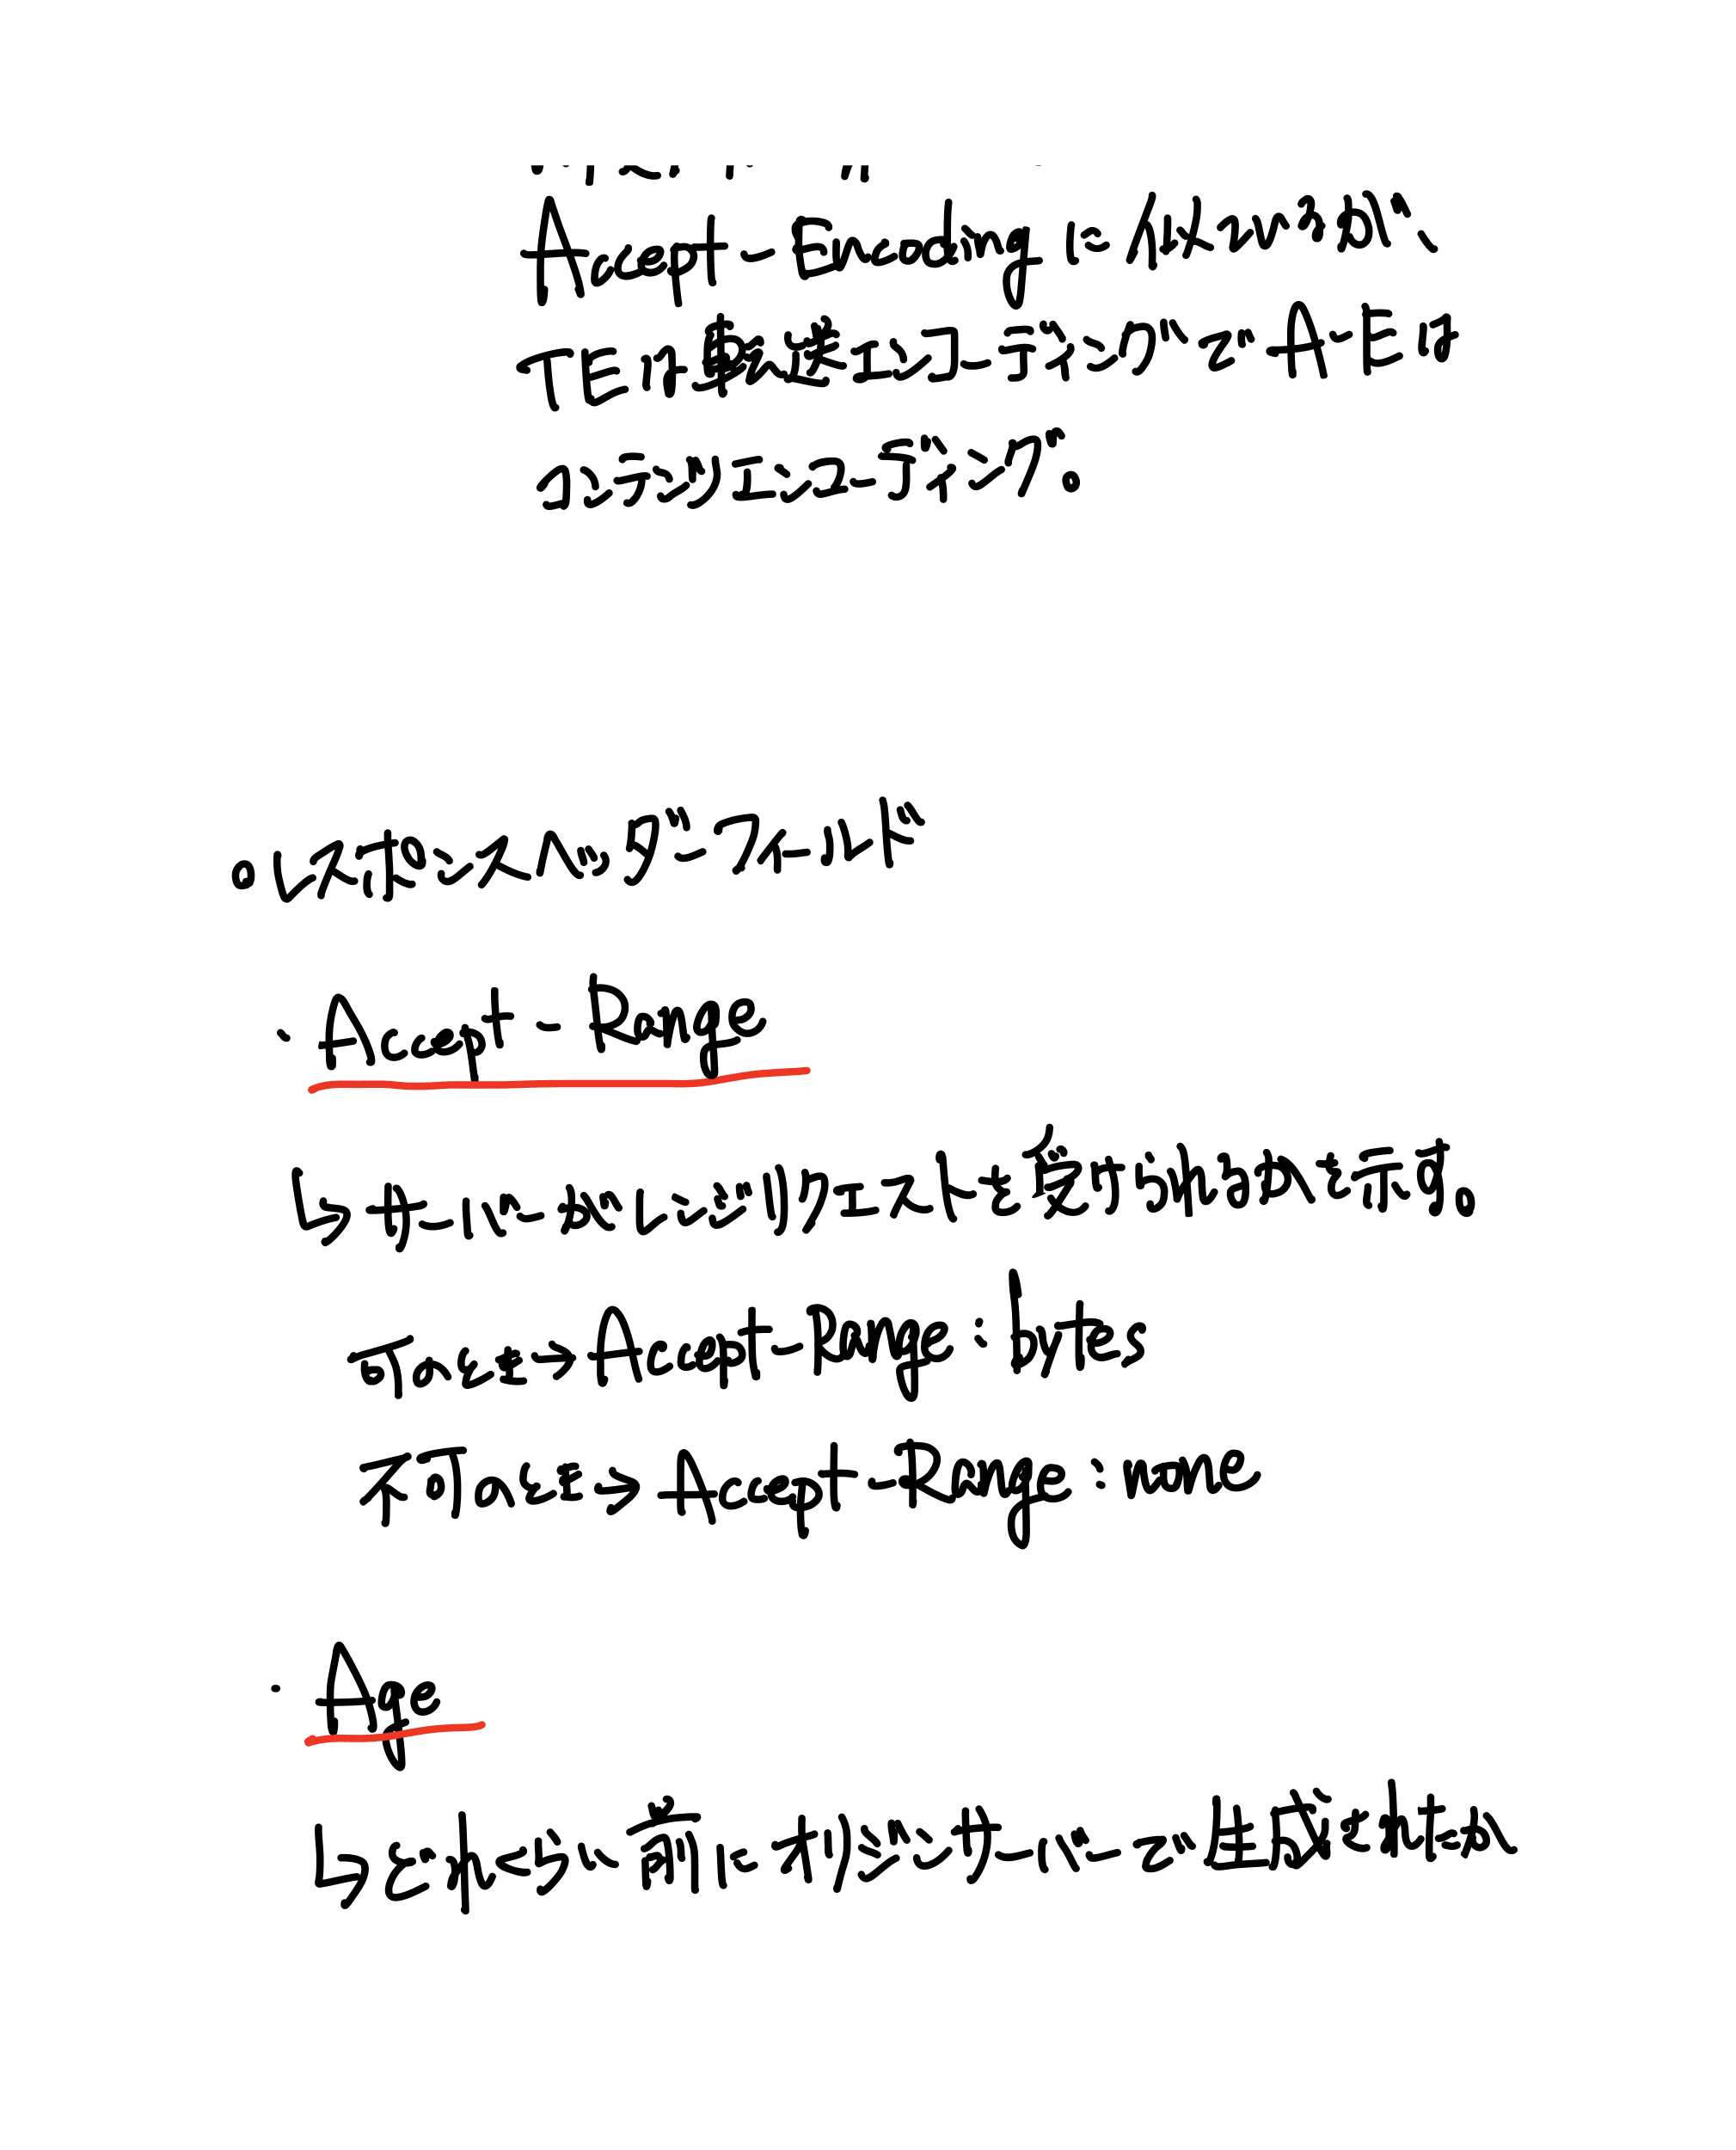 Accept-Encodingに似ているが、
TEは転送エンコーディングでA-Eは
コンテンツエンコーディング。
○レスポンスヘッダーフィールド
・Accept-Range
↳サーバーがレンジリクエストを受けられるかを示す。
可のとき→Accept-Range:bytes
不可のとき→Accept-Range:none
・Age
↳どれくらい前にオリジンサーバーで生成されたか